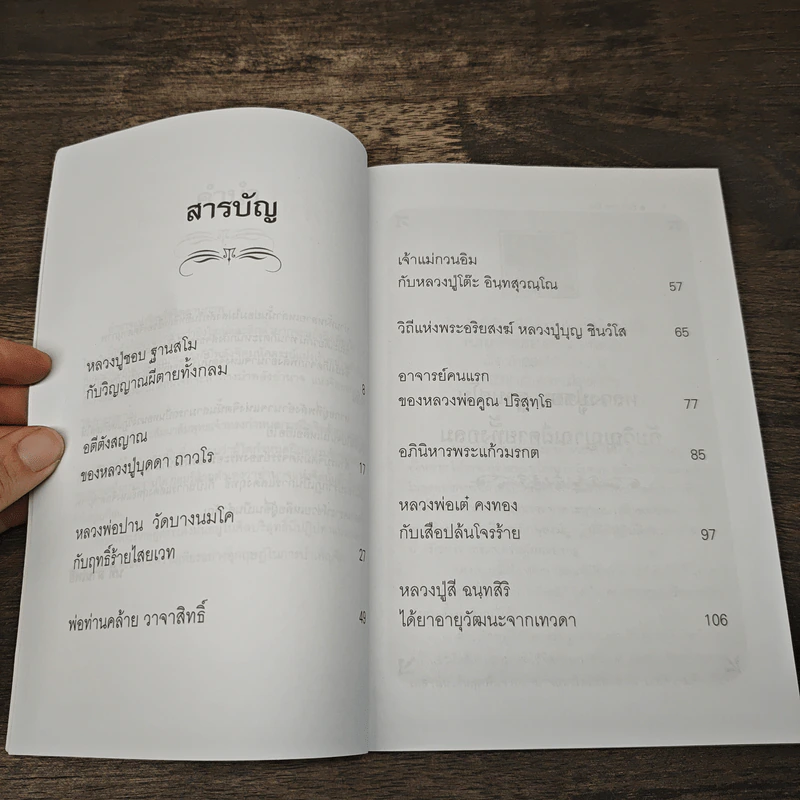 สารบัญ
หลวงปู่ชอบ ฐานสโม
กับวิญญาณผีตายทั้งกลม 8
อตีตังสญาณ
ของหลวงปู่บุดดา ถาวโร 17
หลวงพ่อปาน วัดบางนมโค
กับฤทธิ์ร้ายไสยเวท 27
พ่อท่านคล้าย วาจาสิทธิ์ 49
เจ้าแม่กวนอิม
กับหลวงปู่โต๊ะ อินฺทสุวณฺโณ 57
วิถีแห่งพระอริยสงฆ์ หลวงปู่บุญ ชินวํโส 65
อาจารย์คนแรก
ของหลวงพ่อคูณ ปริสุทฺโธ 77
อภินิหารพระแก้วมรกต 85
หลวงพ่อเต๋ คงทอง
กับเสือปล้นโจรร้าย 97
หลวงปู่สี ฉนฺทสิริ
ได้ยาอายุวัฒนะจากเทวดา 106